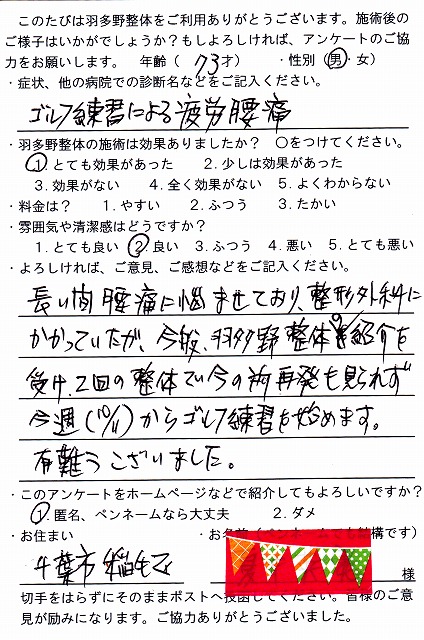 このたびは羽多野整体をご利用ありがとうございます。施術後の
ご様子はいかがでしょうか?もしよろしければ、アンケートのご協
力をお願いします。 年齢( 73才) ・性別(男・女)
・症状、他の病院での診断名などをご記入ください。
ゴルフ練習による疲労腰痛
・羽多野整体の施術は効果ありましたか? ○をつけてください。
1.とても効果があった 2.少しは効果があった
3.効果がない 4.全く効果がない 5.よくわからない
・料金は? 1.やすい 2.ふつう 3.たかい
・雰囲気や清潔感はどうですか?
1.とても良い 2.良い 3.ふつう 4.悪い 5.とても悪い
・よろしければ、ご意見、ご感想などをご記入ください。
長い間腰痛に悩ませており、整形外科に
かかっていたが、今般、羽多野整体の紹介を
受け、2回の整体で今の所再発も見られず
今週(10/11)からゴルフ練習を始めます。
有難うございました。
・このアンケートをホームページなどで紹介してもよろしいですか?
1.匿名、ペンネームなら大丈夫 2.ダメ
・お住まい ・お名前(ペンネームでも結構です)
千葉市稲毛区 様
切手をはらずにそのままポストへ投函してください。皆様のご意
見が励みになります。ご協力ありがとうございました。